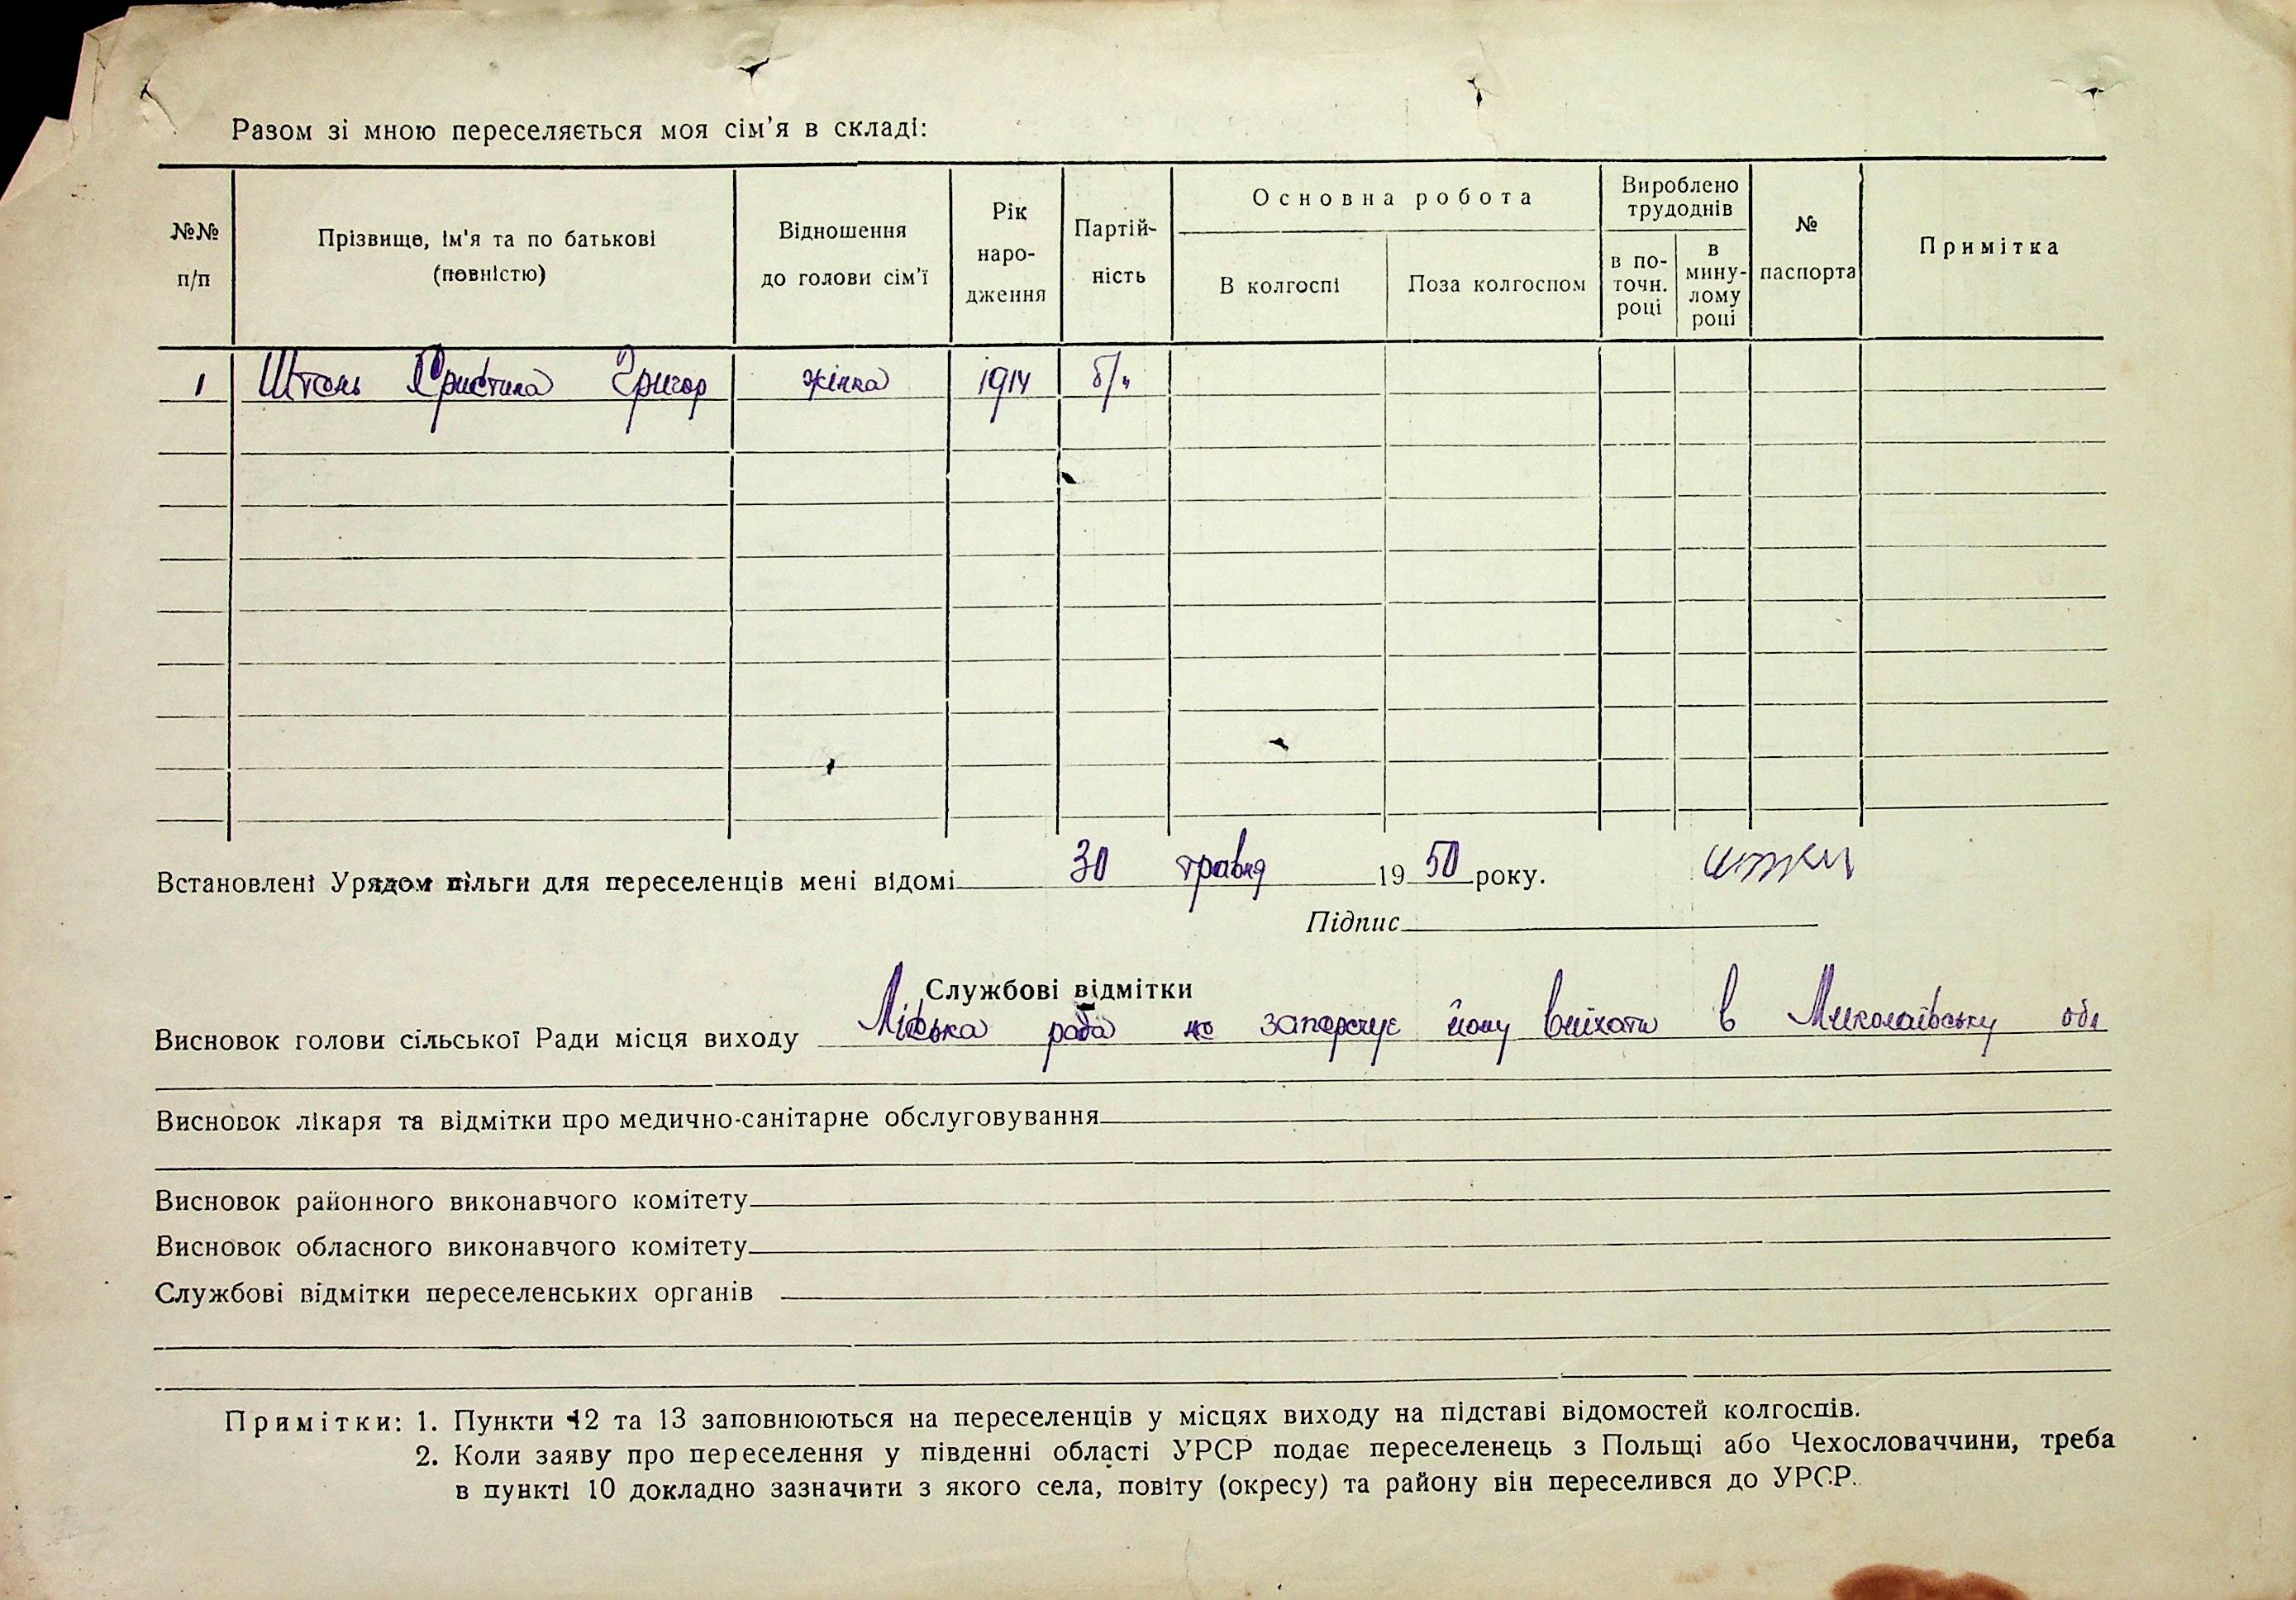 Разом зі мною переселяється моя сім'я в складі:
№№ п/п
Прізвище, ім'я та по батькові (повністю)
Відношення до голови сім'ї
Рік народження
Партійність
Основна робота
В колгоспі
Поза колгоспом
Вироблено трудоднів
в поточн. році
в минулому році
№ паспорта
Примітка
1 Штань Христина Григор жінка 1914 б/п
Встановлені Урядом пільги для переселенців мені відомі 30 травня 1950 року.
Підпис
Службові відмітки
Висновок голови сільської Ради місця виходу Міська рада не заперечує йому виїхати в Миколаївську обл
Висновок лікаря та відмітки про медично-санітарне обслуговування
Висновок районного виконавчого комітету
Висновок обласного виконавчого комітету
Службові відмітки переселенських органів
Примітки: 1. Пункти 12 та 13 заповнюються на переселенців у місцях виходу на підставі відомостей колгоспів.
2. Коли заяву про переселення у південні області УРСР подає переселенець з Польщі або Чехословаччини, треба
в пункті 10 докладно зазначити з якого села, повіту (окресу) та району він переселився до УРСР.